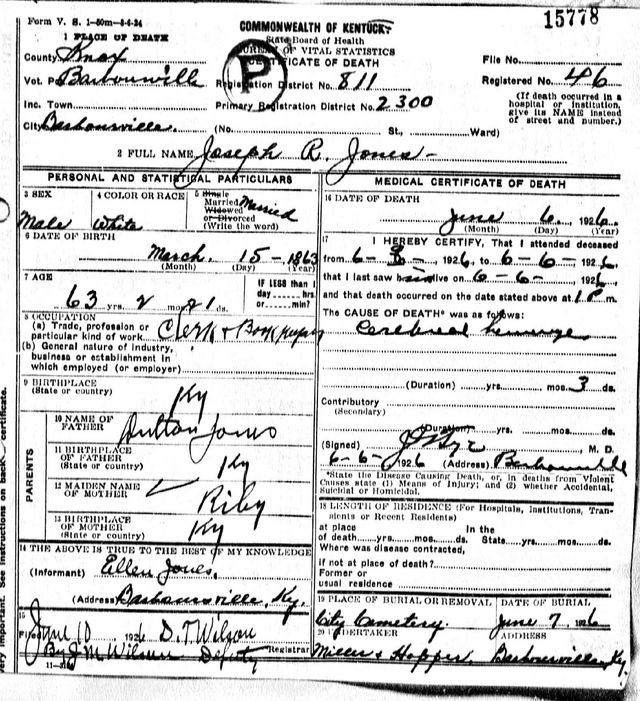 Form V. S. 1-50m-8-6-24
COMMONWEALTH OF KENTUCKY
15778
1 PLACE OF DEATH
State Board of Health
BUREAU OF VITAL STATISTICS
CERTIFICATE OF DEATH
P
County Knox
File No.
Vot. Barbourville
Registration District No. 811
Registered No. 46
Inc. Town
Primary Registration District No. 2300
(If death occurred in a hospital or institution, give its NAME instead of street and number.)
City Barbourville. (No. St., Ward)
2 FULL NAME Joseph R. Jones
PERSONAL AND STATISTICAL PARTICULARS
3 SEX
Male
4 COLOR OR RACE
White
5 Single
Married
Widowed
or Divorced
(Write the word)
Married
6 DATE OF BIRTH
March 15 - 1863
(Month) (Day) (Year)
7 AGE
63 yrs. 2 mos. 21 ds.
IF LESS than 1
day hrs.
or min?
8 OCCUPATION
(a) Trade, profession or
particular kind of work Clerk & Book keeper
(b) General nature of industry,
business or establishment in
which employed (or employer)
9 BIRTHPLACE
(State or country)
Ky
PARENTS
10 NAME OF
FATHER
Jones
11 BIRTHPLACE
OF FATHER
(State or country)
Ky
12 MAIDEN NAME
OF MOTHER
Riley
13 BIRTHPLACE
OF MOTHER
(State or country)
Ky
14 THE ABOVE IS TRUE TO THE BEST OF MY KNOWLEDGE
(Informant) Ellen Jones
(Address) Barbourville, Ky.
15
Filed June 10, 1926 D. T. Wilson
Registrar
By J M Wilson Deputy
MEDICAL CERTIFICATE OF DEATH
16 DATE OF DEATH
June 6, 1926
(Month) (Day) (Year)
17 I HEREBY CERTIFY, That I attended deceased
from 6- , 1926, to 6-6-, 1926,
that I last saw him alive on 6-6-, 1926,
and that death occurred on the date stated above at 1 P m.
The CAUSE OF DEATH* was as follows:
Cerebral hemorrage
(Duration) yrs. mos. 3 ds.
Contributory
(Secondary)
(Duration) yrs. mos. ds.
(Signed) M. D.
6-6-, 1926 (Address) Barbourville
*State the Disease Causing Death, or, in deaths from Violent
Causes state (1) Means of Injury; and (2) whether Accidental,
Suicidal or Homicidal.
18 LENGTH OF RESIDENCE (For Hospitals, Institutions, Tran-
sients or Recent Residents)
at place In the
of death yrs. mos. ds. State yrs. mos. ds.
Where was disease contracted,
if not at place of death?
Former or
usual residence
19 PLACE OF BURIAL OR REMOVAL
City Cemetery.
DATE OF BURIAL
June 7, 1926
20 UNDERTAKER
Miller & Hopper
ADDRESS
Barbourville Ky.
very important. See instructions on back certificate.